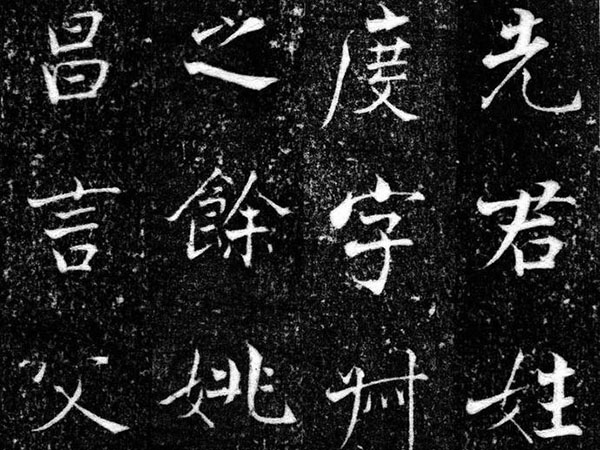 先君姓
度字
之餘姚
昌言父